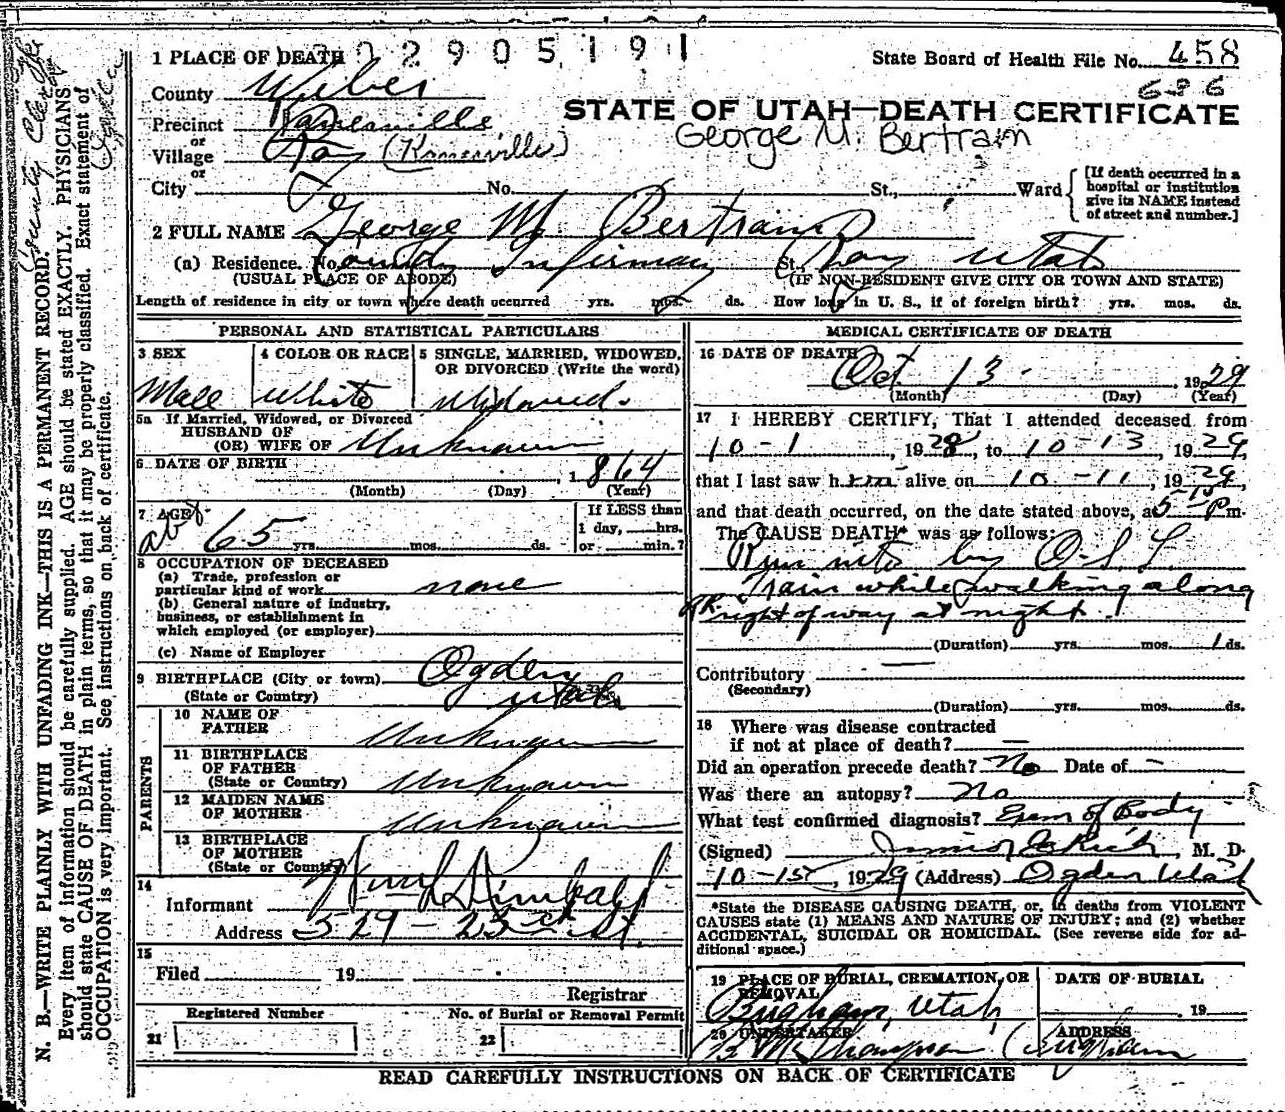 1 PLACE OF DEATH
2905191
State Board of Health File No. 458
County Weber
636
STATE OF UTAH—DEATH CERTIFICATE
Precinct Kanesville
George M. Bertram
or
Village Roy (Kanesville)
or
City No. St., Ward
[If death occurred in a
hospital or institution
give its NAME instead
of street and number.]
2 FULL NAME George M. Bertram
(a) Residence. No. County Infirmary St., Roy Utah
(USUAL PLACE OF ABODE) (IF NON-RESIDENT GIVE CITY OR TOWN AND STATE)
Length of residence in city or town where death occurred yrs. mos. ds. How long in U. S., if of foreign birth? yrs. mos. ds.
PERSONAL AND STATISTICAL PARTICULARS
3 SEX
Male
4 COLOR OR RACE
White
5 SINGLE, MARRIED, WIDOWED,
OR DIVORCED (Write the word)
Widowed.
5a If Married, Widowed, or Divorced
HUSBAND OF
(OR) WIFE OF Unknown
6 DATE OF BIRTH
, 1864
(Month) (Day) (Year)
7 AGE
abt 65 yrs. mos. ds.
If LESS than
1 day, hrs.
or min.?
8 OCCUPATION OF DECEASED
(a) Trade, profession or
particular kind of work none
(b) General nature of industry,
business, or establishment in
which employed (or employer)
(c) Name of Employer
9 BIRTHPLACE (City or town) Ogden
(State or Country) Utah
PARENTS
10 NAME OF
FATHER Unknown
11 BIRTHPLACE
OF FATHER
(State or Country) Unknown
12 MAIDEN NAME
OF MOTHER Unknown
13 BIRTHPLACE
OF MOTHER
(State or Country)
14
Informant
Address 529 - 23rd St.
15
Filed 19
Registrar
Registered Number No. of Burial or Removal Permit
21 22
MEDICAL CERTIFICATE OF DEATH
16 DATE OF DEATH
Oct 13 , 1929
(Month) (Day) (Year)
17 I HEREBY CERTIFY, That I attended deceased from
10-1, 1928, to 10-13, 1929,
that I last saw him alive on 10-11, 1929,
and that death occurred, on the date stated above, at 5 10 Pm.
The CAUSE DEATH* was as follows:
Run into by O.S.L.
Train while walking along
RR. right of way at night.
(Duration) yrs. mos. 1 ds.
Contributory
(Secondary)
(Duration) yrs. mos. ds.
18 Where was disease contracted
if not at place of death? —
Did an operation precede death? No Date of —
Was there an autopsy? No
What test confirmed diagnosis? Exam of Body
(Signed) Junior Rich, M. D.
10-15, 1929 (Address) Ogden Utah
*State the DISEASE CAUSING DEATH, or, in deaths from VIOLENT
CAUSES state (1) MEANS AND NATURE OF INJURY; and (2) whether
ACCIDENTAL, SUICIDAL OR HOMICIDAL. (See reverse side for ad-
ditional space.)
19 PLACE OF BURIAL, CREMATION, OR
REMOVAL
Brigham, Utah,
DATE OF BURIAL
19
20 UNDERTAKER
Thompson
ADDRESS
Brigham
READ CAREFULLY INSTRUCTIONS ON BACK OF CERTIFICATE
N. B.—WRITE PLAINLY WITH UNFADING INK—THIS IS A PERMANENT RECORD.
Every item of information should be carefully supplied. AGE should be stated EXACTLY. PHYSICIANS
should state CAUSE OF DEATH in plain terms, so that it may be properly classified. Exact statement of
OCCUPATION is very important. See instructions on back of certificate.
County Clerk